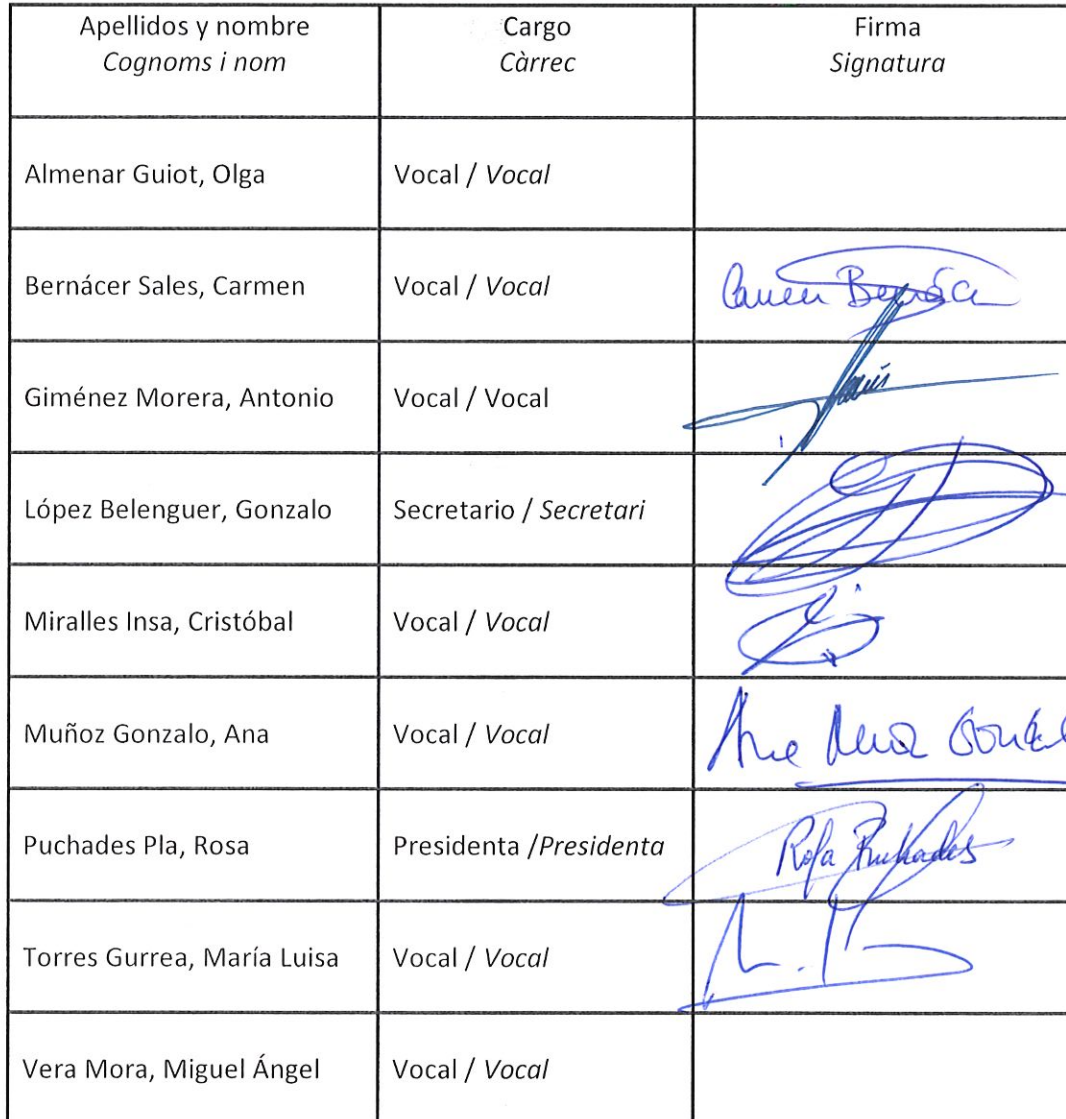 Apellidos y nombre Cargo Firma
Cognoms i nom Càrrec Signatura
Almenar Guiot, Olga Vocal / Vocal
Bernácer Sales, Carmen Vocal / Vocal Carmen Bernácer
Giménez Morera, Antonio Vocal / Vocal
López Belenguer, Gonzalo Secretario / Secretari
Miralles Insa, Cristóbal Vocal / Vocal
Muñoz Gonzalo, Ana Vocal / Vocal Ana Muñoz
Puchades Pla, Rosa Presidenta /Presidenta Rosa Puchades
Torres Gurrea, María Luisa Vocal / Vocal
Vera Mora, Miguel Ángel Vocal / Vocal